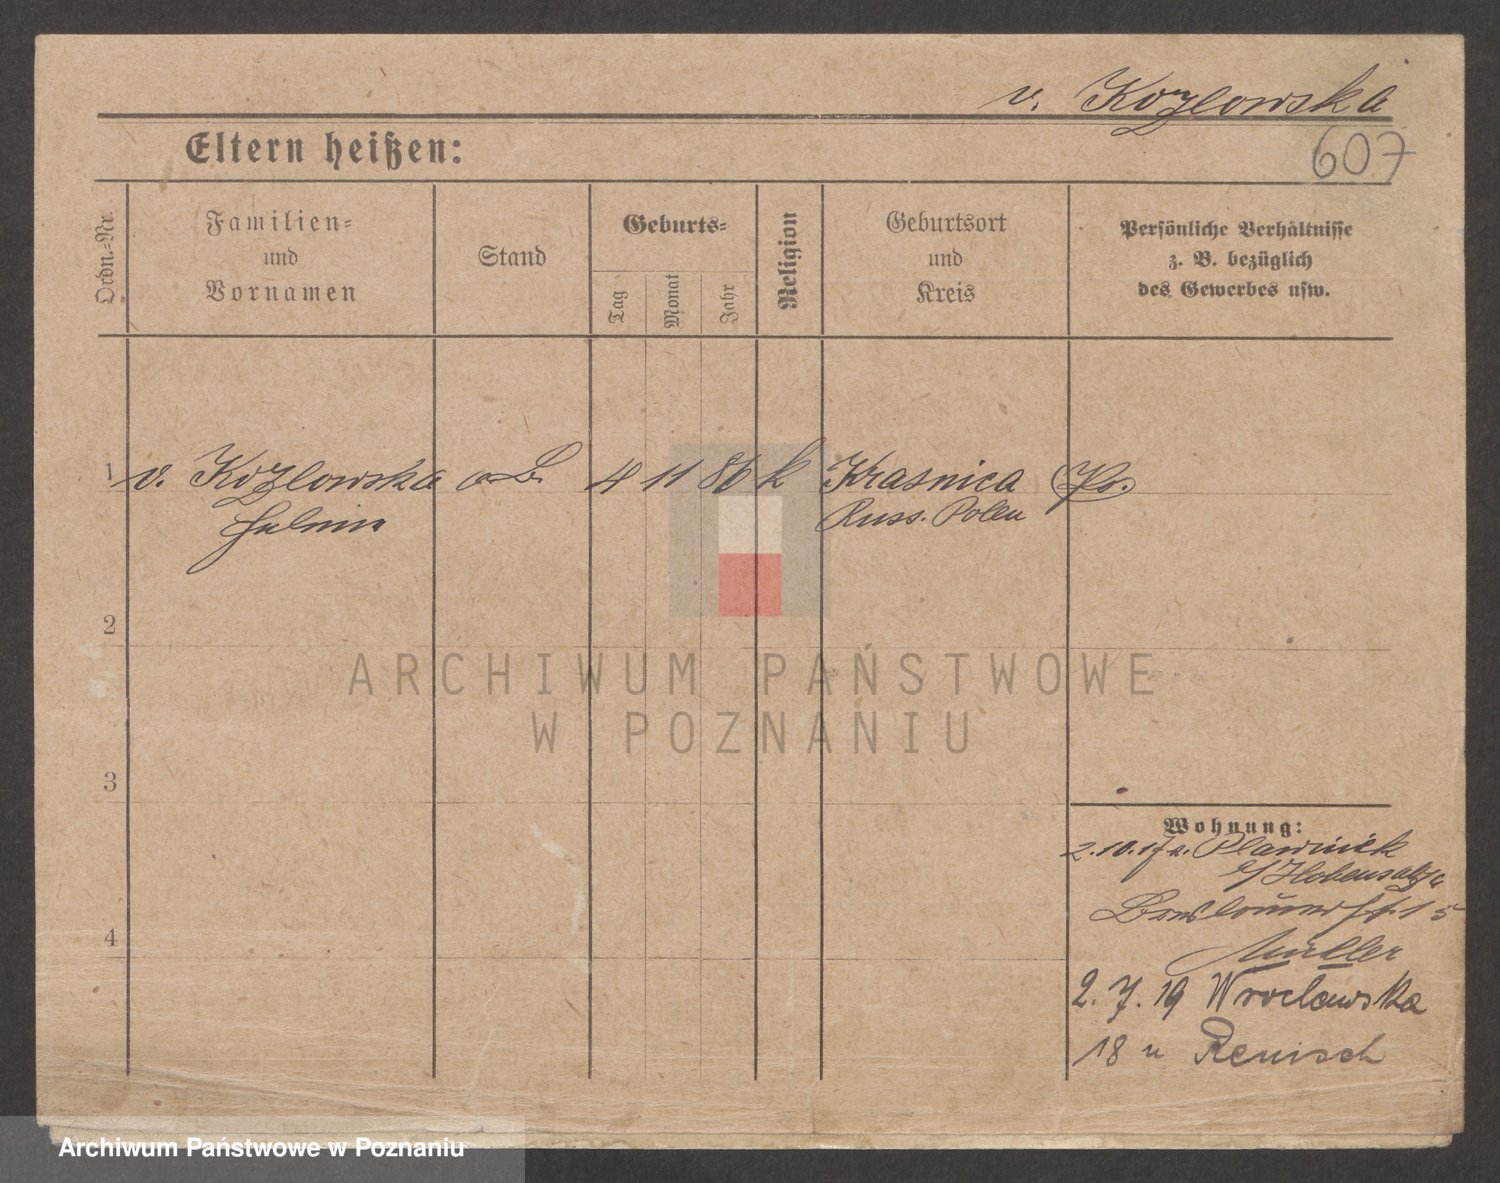 v. Kozlowska
Eltern heißen:
607
Ordn.-Nr.
Familien-
und
Vornamen
Stand
Geburts-
Tag
Monat
Jahr
Religion
Geburtsort
und
Kreis
Persönliche Verhältnisse
z. B. bezüglich
des Gewerbes usw.
1 v. Kozlowska o B. 4 11 86 k Krasnica Po.
Halmin
Russ. Polen
2
ARCHIWUM PAŃSTWOWE
W POZNANIU
3
Wohnung:
2.10.17 a. Plawinek
b/Hohensalza
Breslauerstr. 15
Müller
4
2. 7. 19 Wroclawska
18 u Renisch
Archiwum Państwowe w Poznaniu